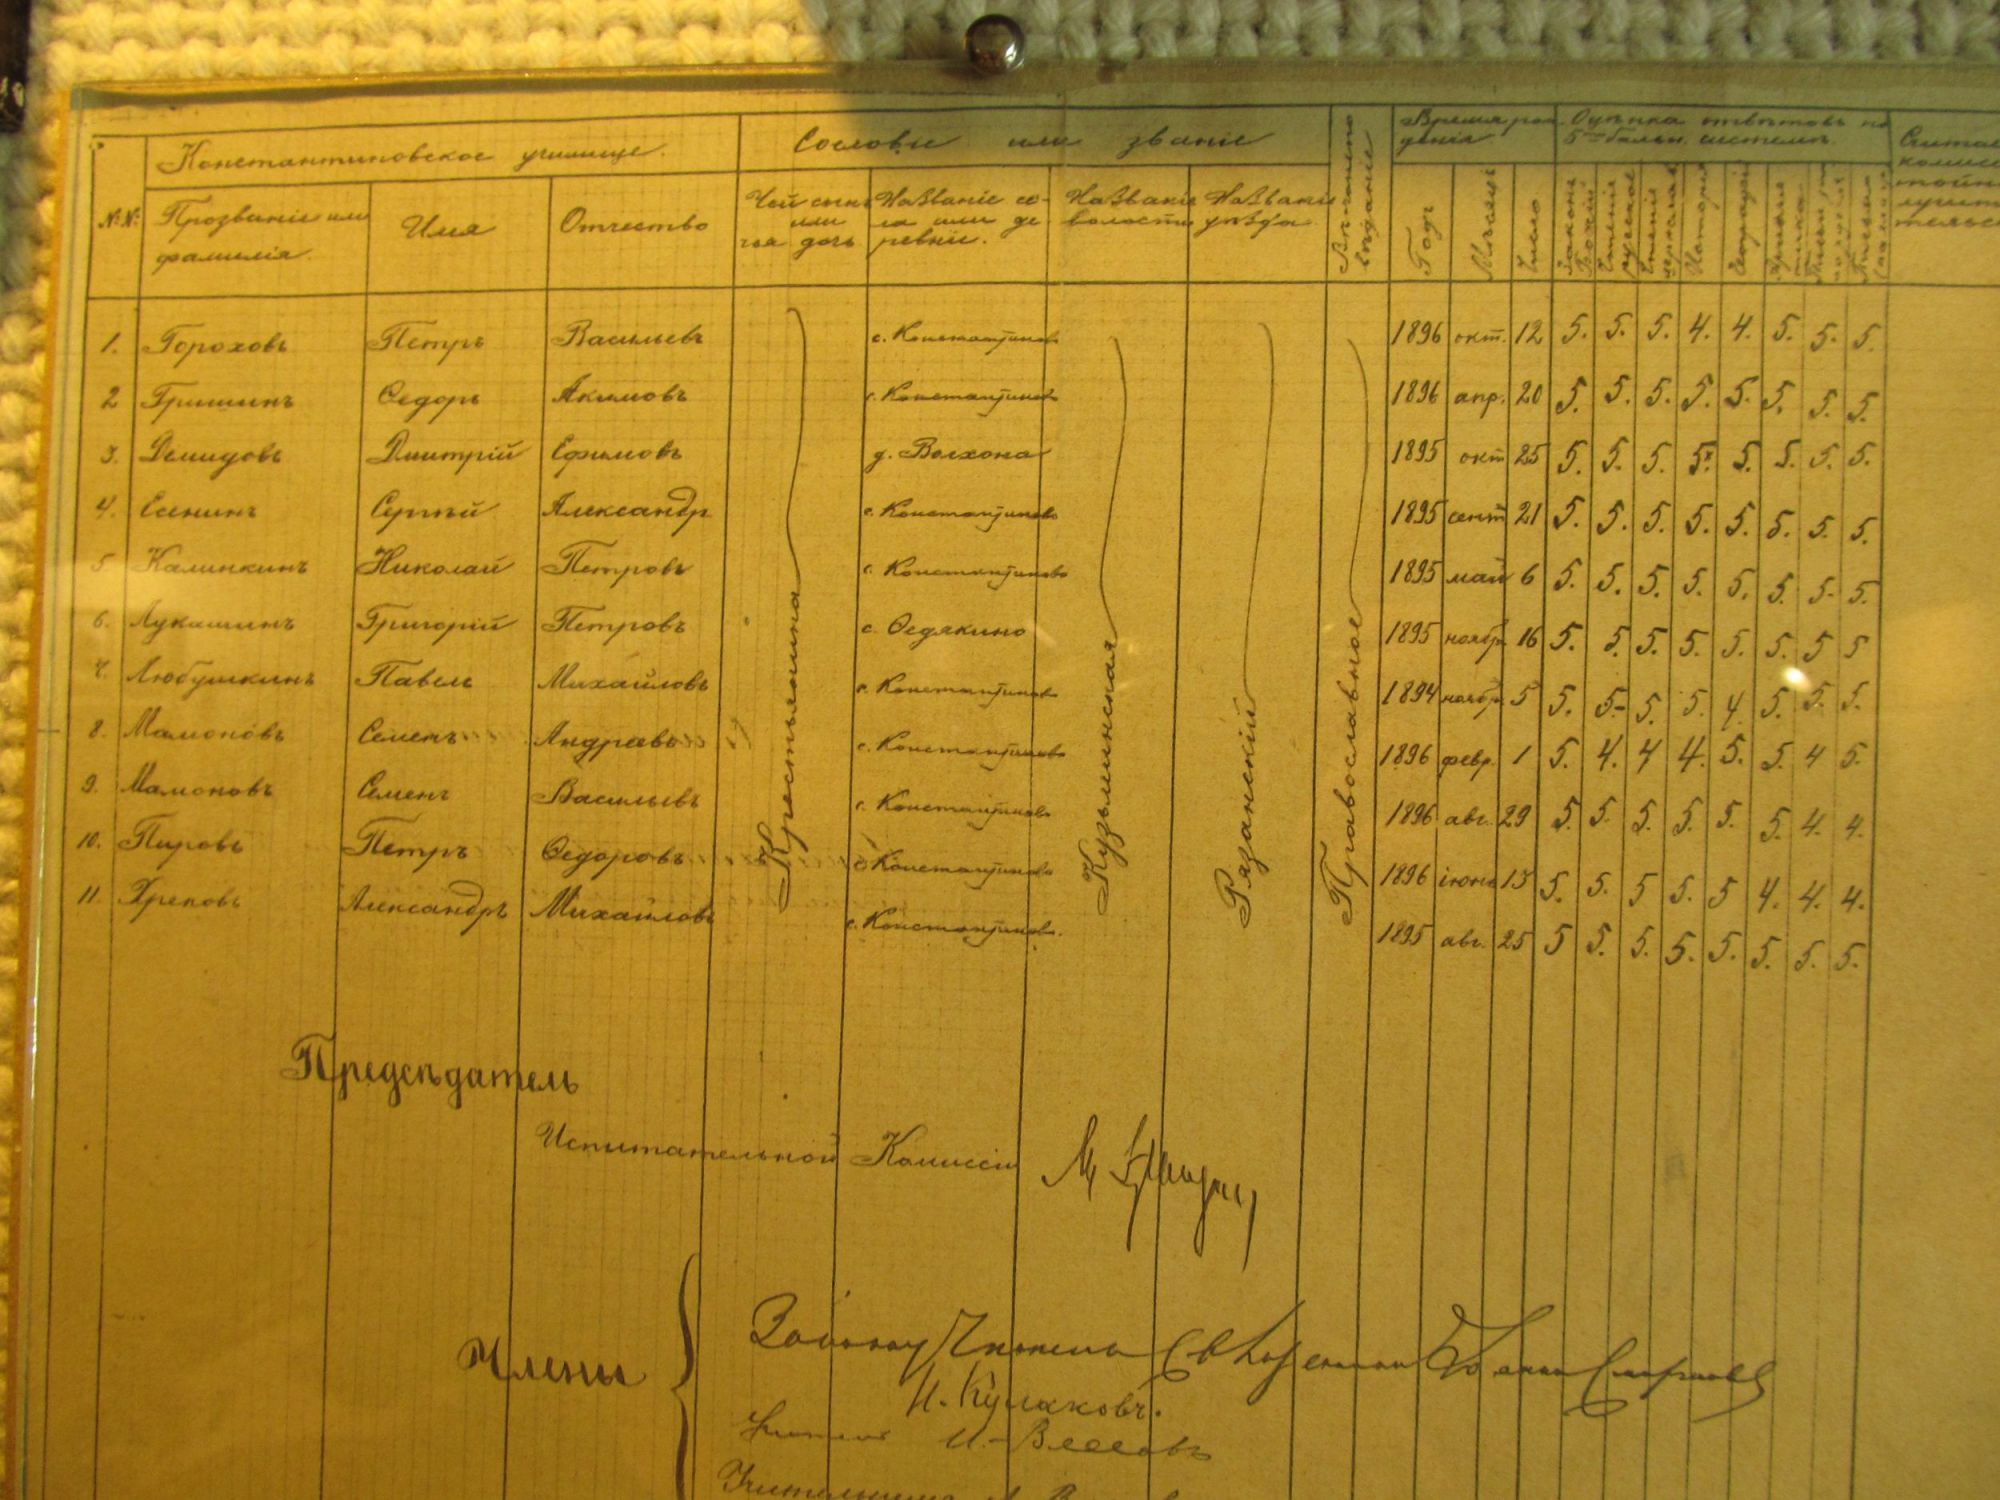 Константиновское училище. Сословіе или званіе Время рож Оцѣнка отвѣтовъ по
денія 5ти бальн. системѣ.
№№ Прозваніе или фамилія. Имя Отчество Чей сынъ или чья дочь Названіе се-ла или де ревни. Названіе волости Названіе уѣзда Вѣроисповѣданіе Годъ Мѣсяцъ Число Законъ Божій
1. Гороховъ Петръ Васильевъ с. Константиново 1896 окт. 12 5. 5. 5. 4. 4. 5. 5. 5.
2 Гришинъ Ѳедоръ Акимовъ с. Константиново 1896 апр. 20 5. 5. 5. 5. 5. 5. 5. 5.
3. Демидовъ Дмитрій Ефимовъ д. Волхона 1895 окт 25 5. 5. 5. 5. 5. 5. 5. 5.
4. Есенинъ Сергѣй Александр с. Константиново 1895 сент 21 5. 5. 5. 5. 5. 5. 5. 5.
5 Калинкинъ Николай Петровъ с. Константиново 1895 май 6 5. 5. 5. 5. 5. 5. 5. 5.
6. Лукашинъ Григорій Петровъ с. Ѳедякино 1895 ноябр. 16 5. 5. 5. 5. 5. 5. 5 5
7. Любушкинъ Павелъ Михайловъ с. Константиново 1894 ноябр. 5 5. 5- 5. 5. 4. 5. 5. 5.
8. Мамоновъ Семенъ Андреевъ с. Константиново 1896 февр. 1 5. 4. 4 4. 5. 5. 4 5.
9. Мамоновъ Семенъ Васильевъ с. Константиново 1896 авг. 29 5. 5. 5. 5. 5. 5. 4. 4.
10. Пировъ Петръ Ѳедоровъ с Константиново 1896 іюнь 13 5. 5. 5 5. 5 4. 4. 4.
11. Хрековъ Александръ Михайловъ с. Константиново. 1895 авг. 25 5 5. 5. 5. 5. 5. 5. 5.
Крестьянина
Кузьминская
Рязанскій
Православное
Предсѣдатель
Испытательной Комиссіи
Члены
Смирновъ
И. Кулаковъ.
Учитель И. Власовъ
Учительница